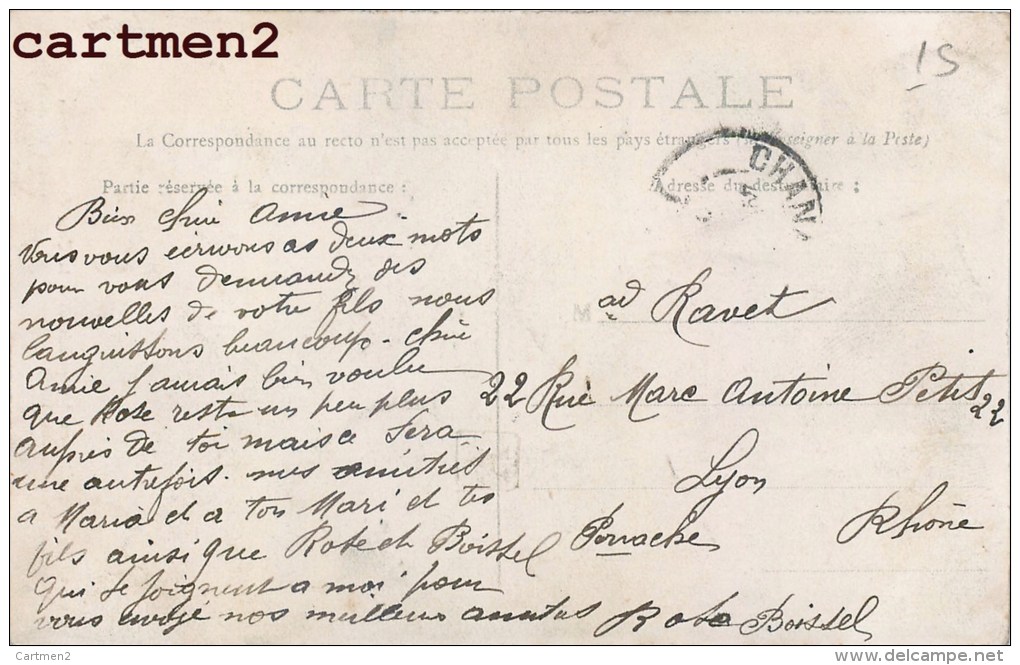 cartmen2
15
CARTE POSTALE
La Correspondance au recto n'est pas acceptée par tous les pays étrangers (se renseigner à la Poste)
Partie réservée à la correspondance :
Adresse du destinataire :
CHAN
Bien chère Amie
Nous vous écrivons as deux mots
pour vous demandez des
nouvelles de votre fils nous
languissons beaucoup - chère
Amie j'aurais bien voulu
que Rose reste un peu plus
auprès de toi mais ce sera
une autrefois. mes amitiés
a Maria et a ton Mari et tes
fils ainsi que Rose et Boissel
qui se joignent a moi pour
vous envoyé nos meilleurs amities Rose Boissel
M ad Ravet
22 Rue Marc Antoine Petit 22
Lyon
Perrache Rhône
Cartmen 2
http://www.delcampe.net